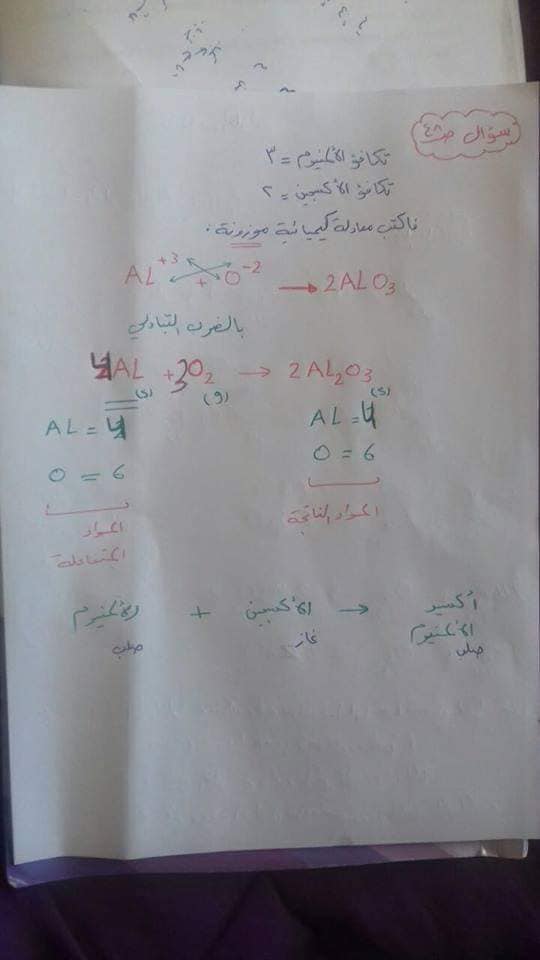 سؤال ص ٤٨
تكافؤ الألمنيوم = ٣
تكافؤ الأكسجين = ٢
فاكتب معادلة كيميائية موزونة .
AL+3 + O-2 → 2ALO3
بالضرب التبادلي
4AL + 3O2 → 2AL2O3
(s) (g) (s)
AL = 4 AL = 4
O = 6 O = 6
المواد المتفاعلة المواد الناتجة
الألمنيوم + الأكسجين → أكسيد الألمنيوم
صلب غاز صلب